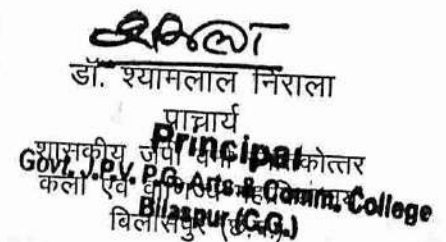 डॉ. श्यामलाल निराला
प्राचार्य
Principal
शासकीय जे.पी. वर्मा स्नातकोत्तर
Govt. J.P.V. P.G. Arts & Comm. College
कला एवं वाणिज्य महाविद्यालय
Bilaspur (C.G.)
बिलासपुर (छ.ग.)